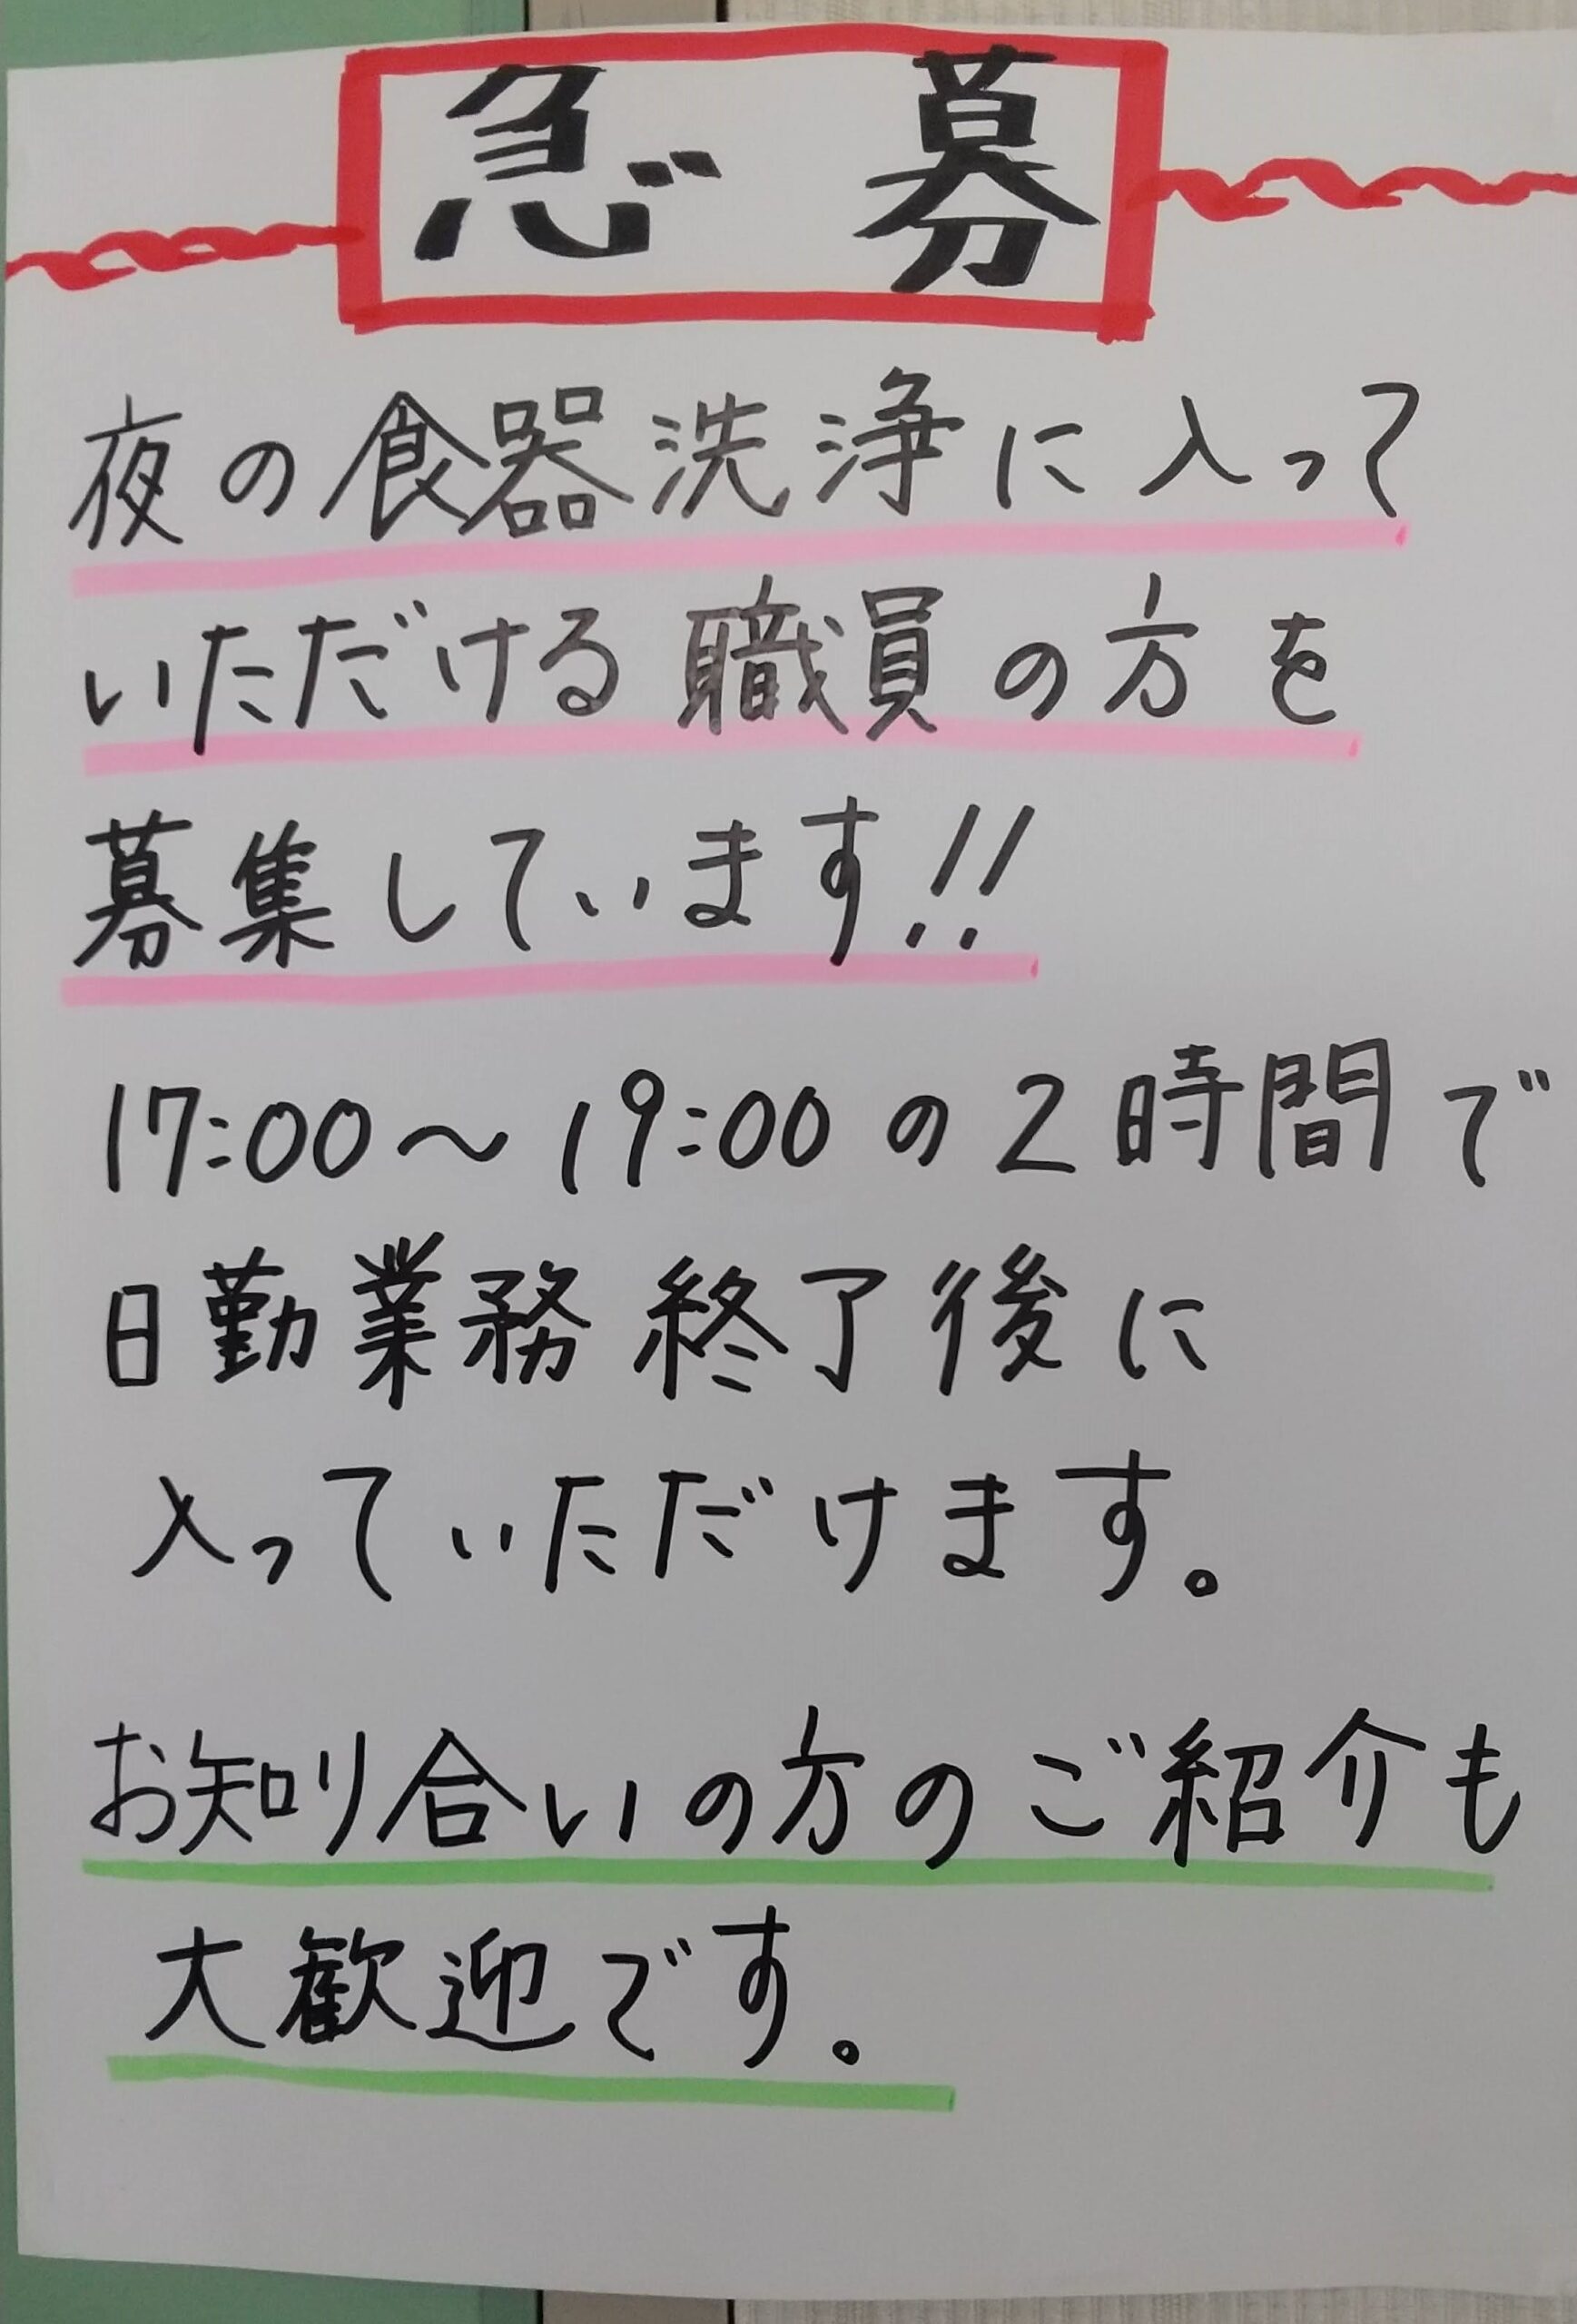 急募
夜の食器洗浄に入って
いただける職員の方を
募集しています!!
17:00～19:00の2時間で
日勤業務終了後に
入っていただけます。
お知り合いの方のご紹介も
大歓迎です。